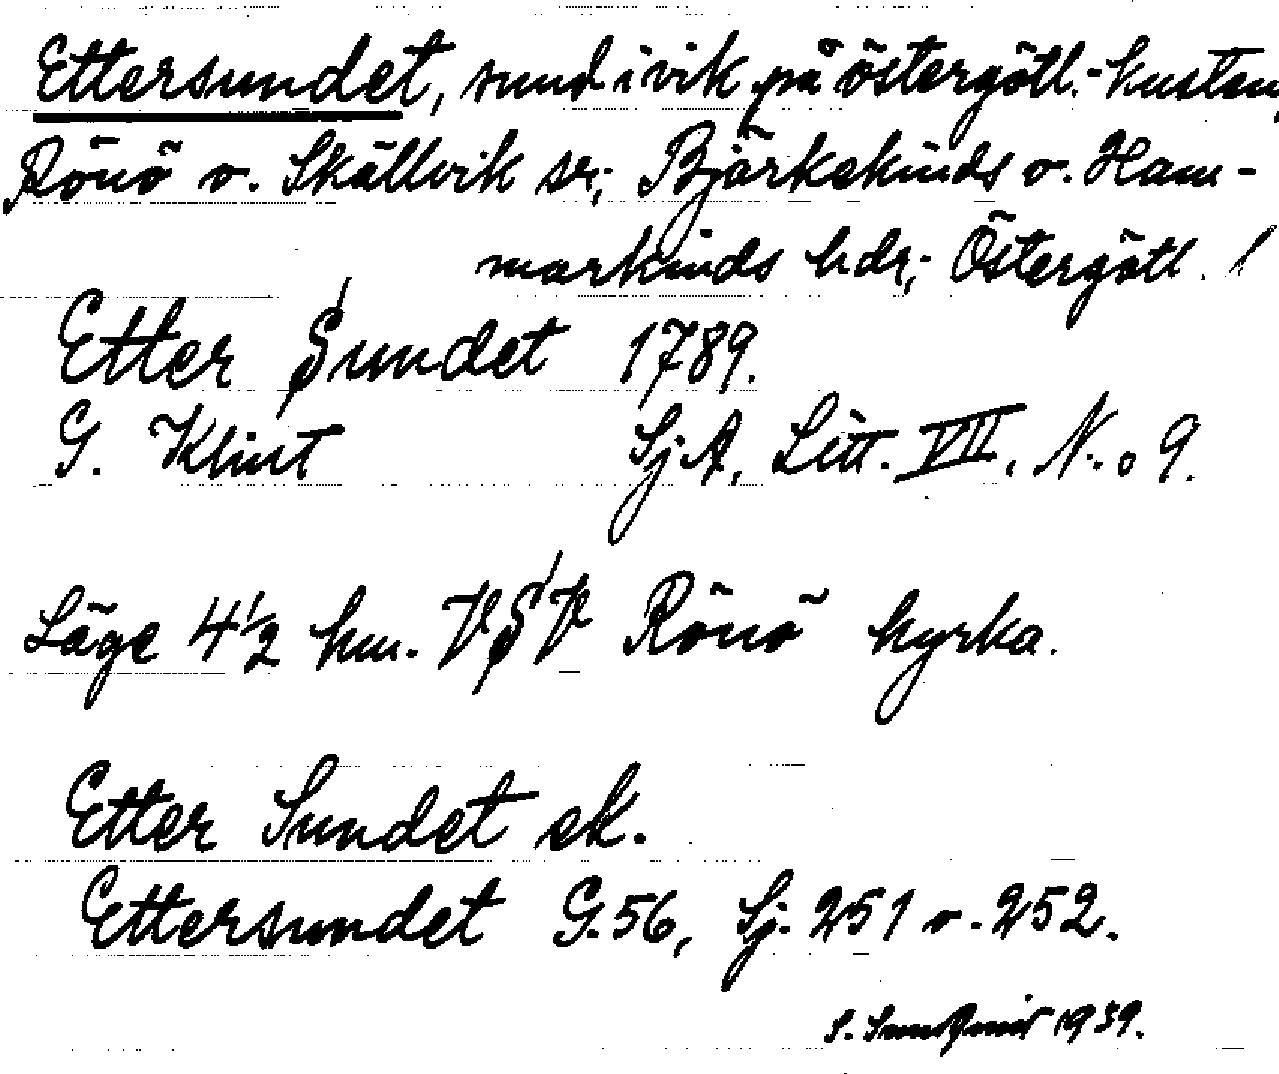 Ettersundet, sund i vik på östergötl.-kusten,
Rönö o. Skällvik sr; Björkekinds o. Ham-
markinds hdr; Östergötl. /
Etter Sundet 1789.
G. Klint Sj.A, Litt. VII. N.o 9.
Läge 4 1/2 km. VSV Rönö kyrka.
Etter Sundet ek.
Ettersundet G.56, Sj. 251 o. 252.
S. 1939.